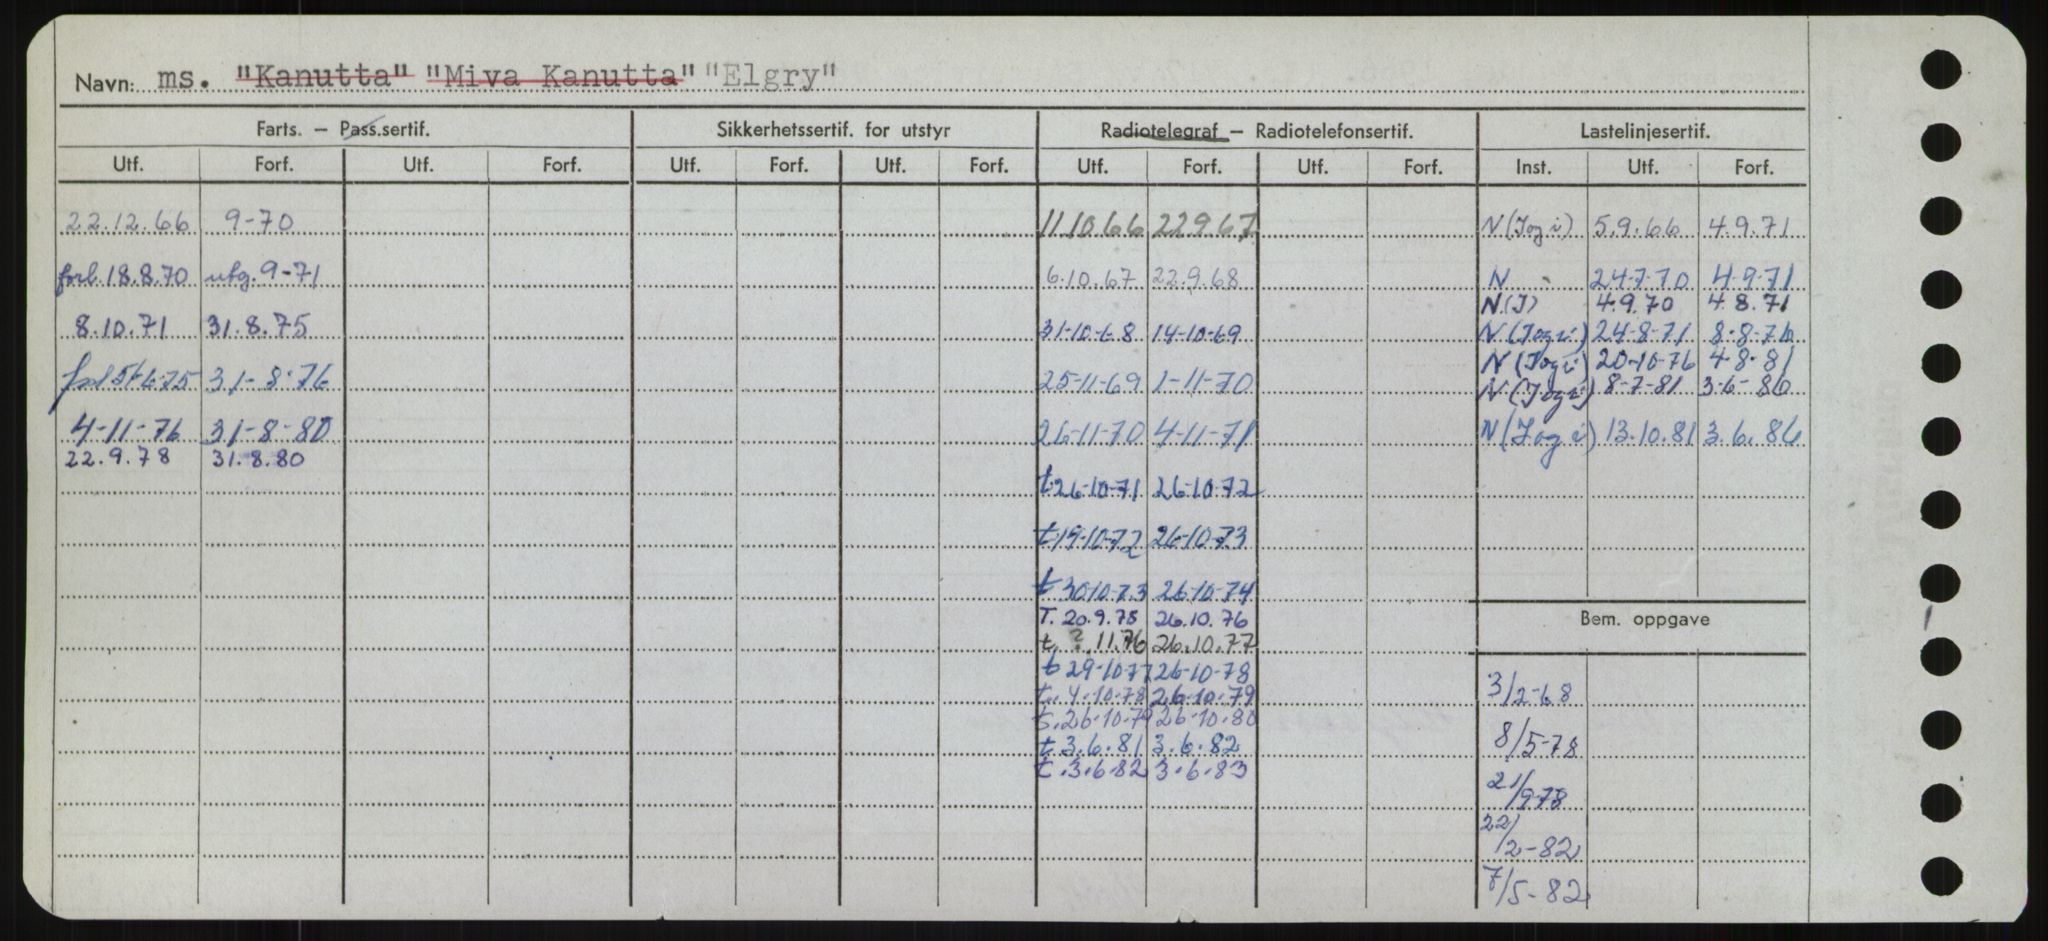 Navn: ms. "Kanutta" "Miva Kanutta" "Elgry"
Farts. — Pass.sertif. Sikkerhetssertif. for utstyr Radiotelegraf — Radiotelefonsertif. Lastelinjesertif.
Utf. Forf. Utf. Forf. Utf. Forf. Utf. Forf. Utf. Forf. Utf. Forf. Inst. Utf. Forf.
22.12.66 9-70 11.10.66 22.9.67 N(I og i) 5.9.66 4.9.71
forl. 18.8.70 utg. 9-71 6.10.67 22.9.68 N 24-7-70 4-9-71
N.(I) 4.9.70 4.8.71
8.10.71 31.8.75 31-10-68 14-10-69 N(I og i) 24-8-71 8-8-76
N(I og i) 20-10-76 4-8-81
31-8-76 25-11-69 1-11-70 N(I og i) 8-7-81 3-6-86
4-11-76 31-8-80 26-11-70 4-11-71 N(I og i) 13.10.81 3.6.86
22.9.78 31.8.80
t. 26-10-71 26-10-72
t. 19-10-72 26-10-73
t 30-10-73 26-10-74
T. 20.9.75 26.10.76 Bem. oppgave
t. ? 11.76 26.10.77
t 29-10-77 26-10-78
t. 4-10-78 26-10-79 3/2-68
t. 26-10-79 26-10-80
t 3.6.81 3.6.82 8/5-78
t. 3.6.82 3.6.83
21/9-78
22/2-82
7/5-82